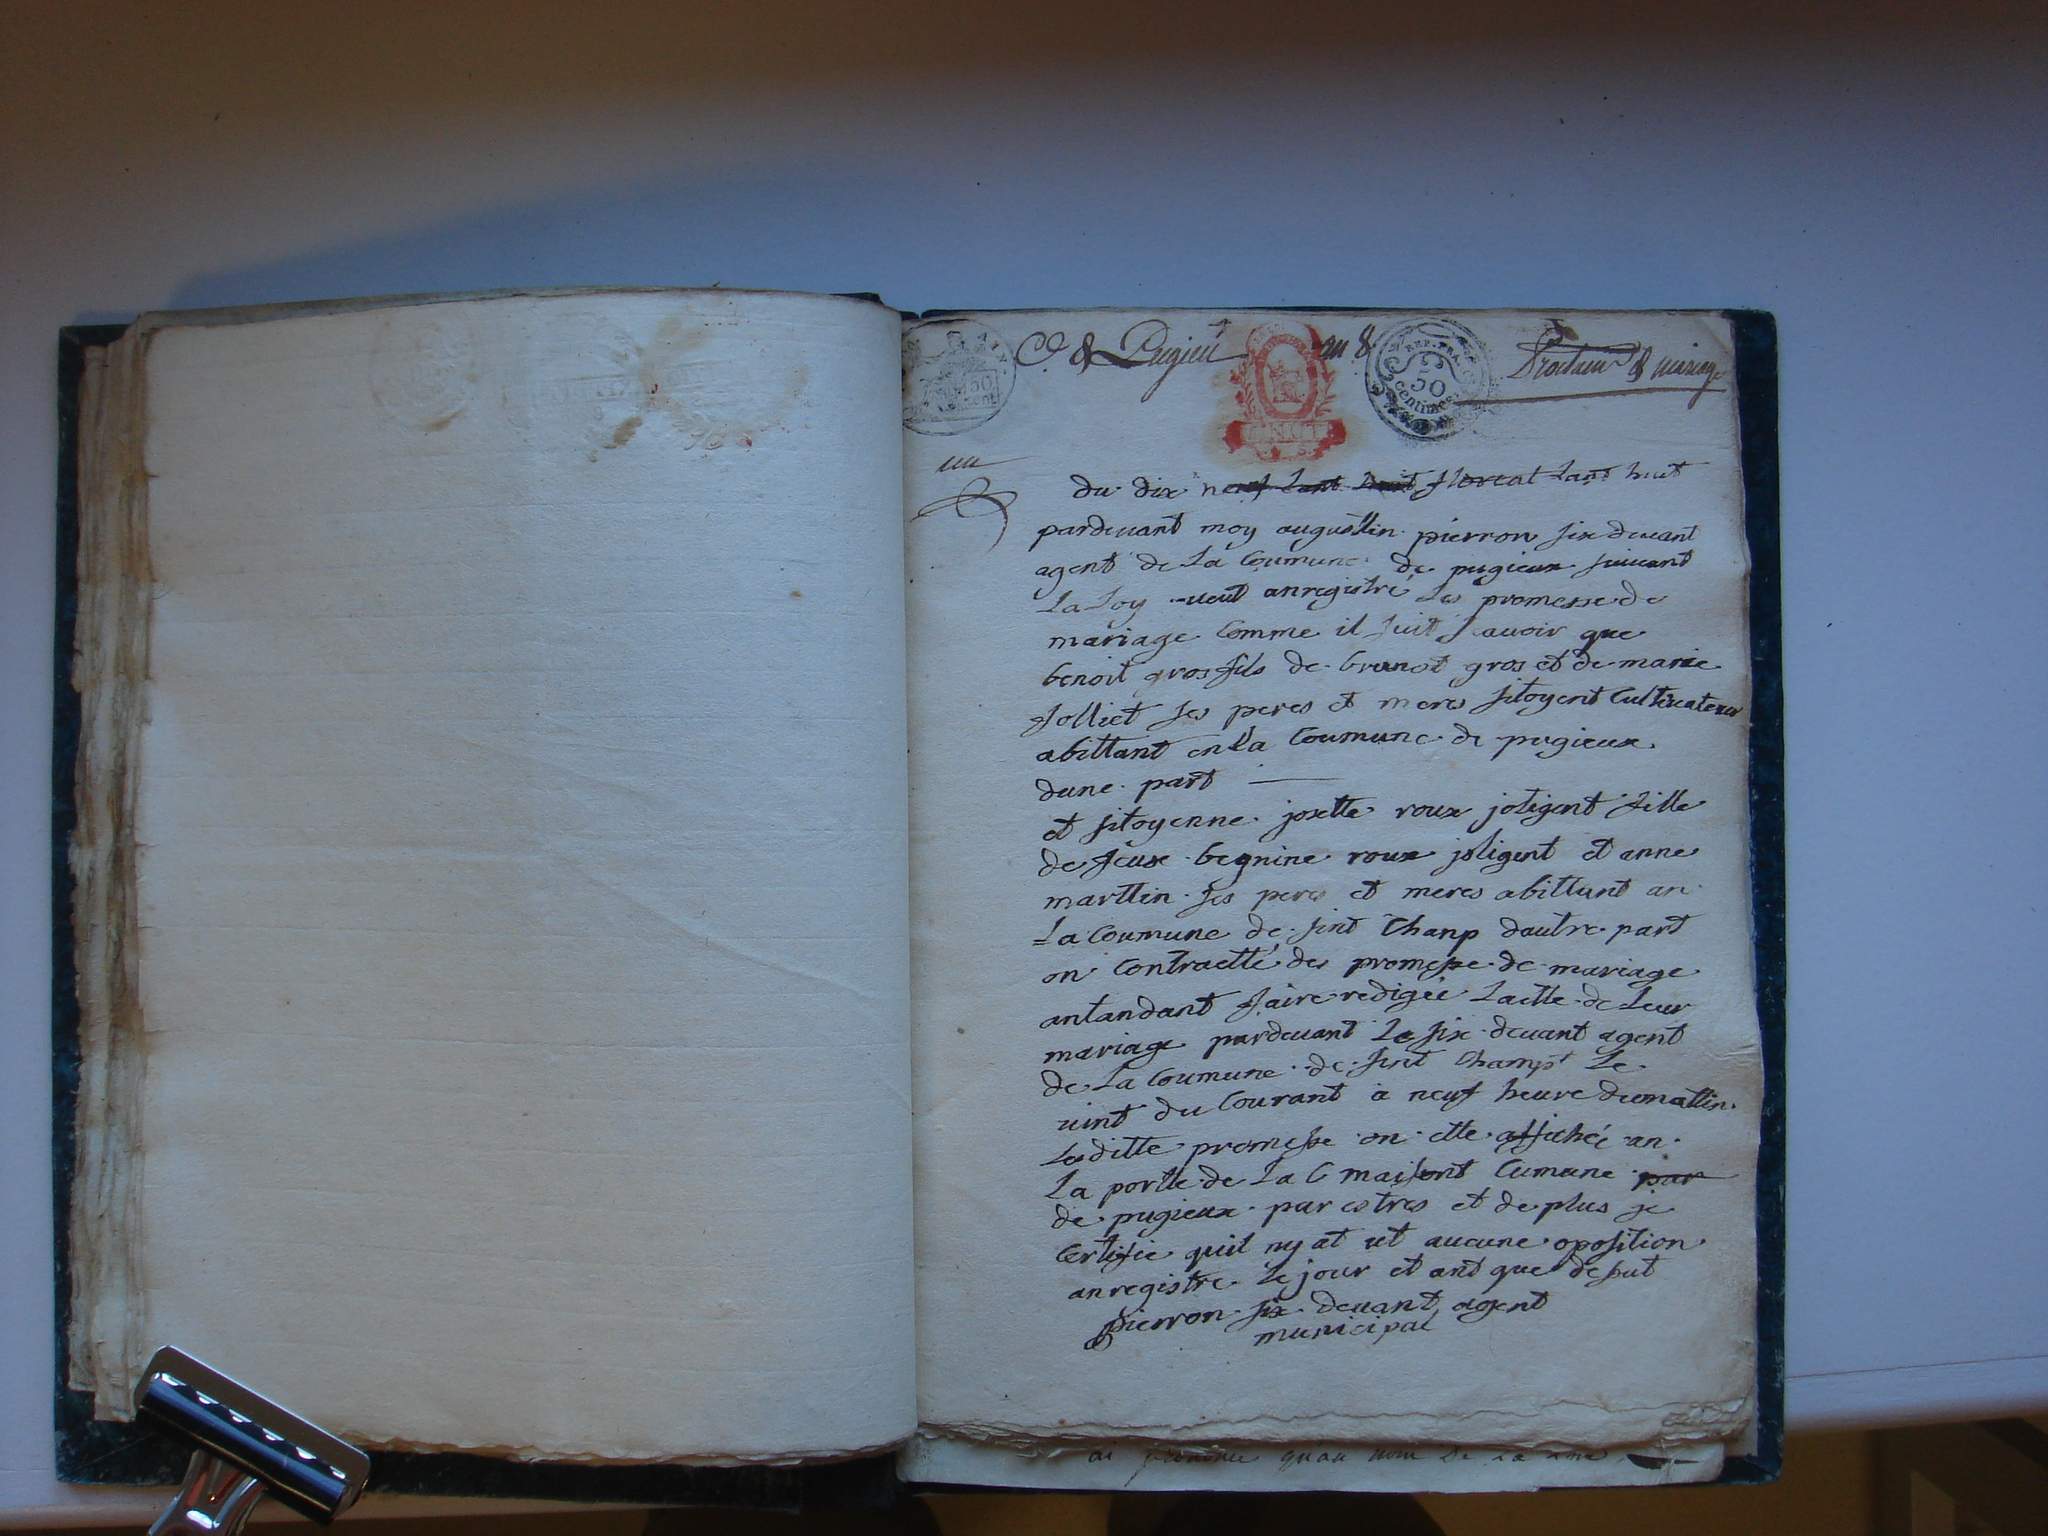 C. de Pugieu
an 8
REP. FRA.
50
centimes
Proclam de mariage
un
du dix neuf Lant huit floreal Lant huit
pardevant moy augusttin pierron six devant
agent de La Coumune de pugieux suivant
La Loy veut anregistré Les promesse de
mariage Comme il suit savoir que
benoit gros fils de brunot gros et de marie
jolliet ses peres et meres sitoyent Cultivateur
abittant en La Coumune de pugieux
dune part
et sitoyenne josette roux joligent fille
de feux begnine roux joligent et anne
marttin ses peres et meres abittant an
La Coumune de sint Chanp dautre part
on Contractté des promesse de mariage
antandant faire redigée Lactte de Leur
mariage pardevant Le six devant agent
de La Coumune de sint Champt Le
vint du Courant à neuf heure du mattin
Les ditte promesse on ette affichée an
La portte de La C maisont Cumune par
de pugieux par estres et de plus je
Certifie quil ny at ut aucune oposition
anregistre Le jour et ant que desut
pierron six devant agent
municipal
quau nom De La